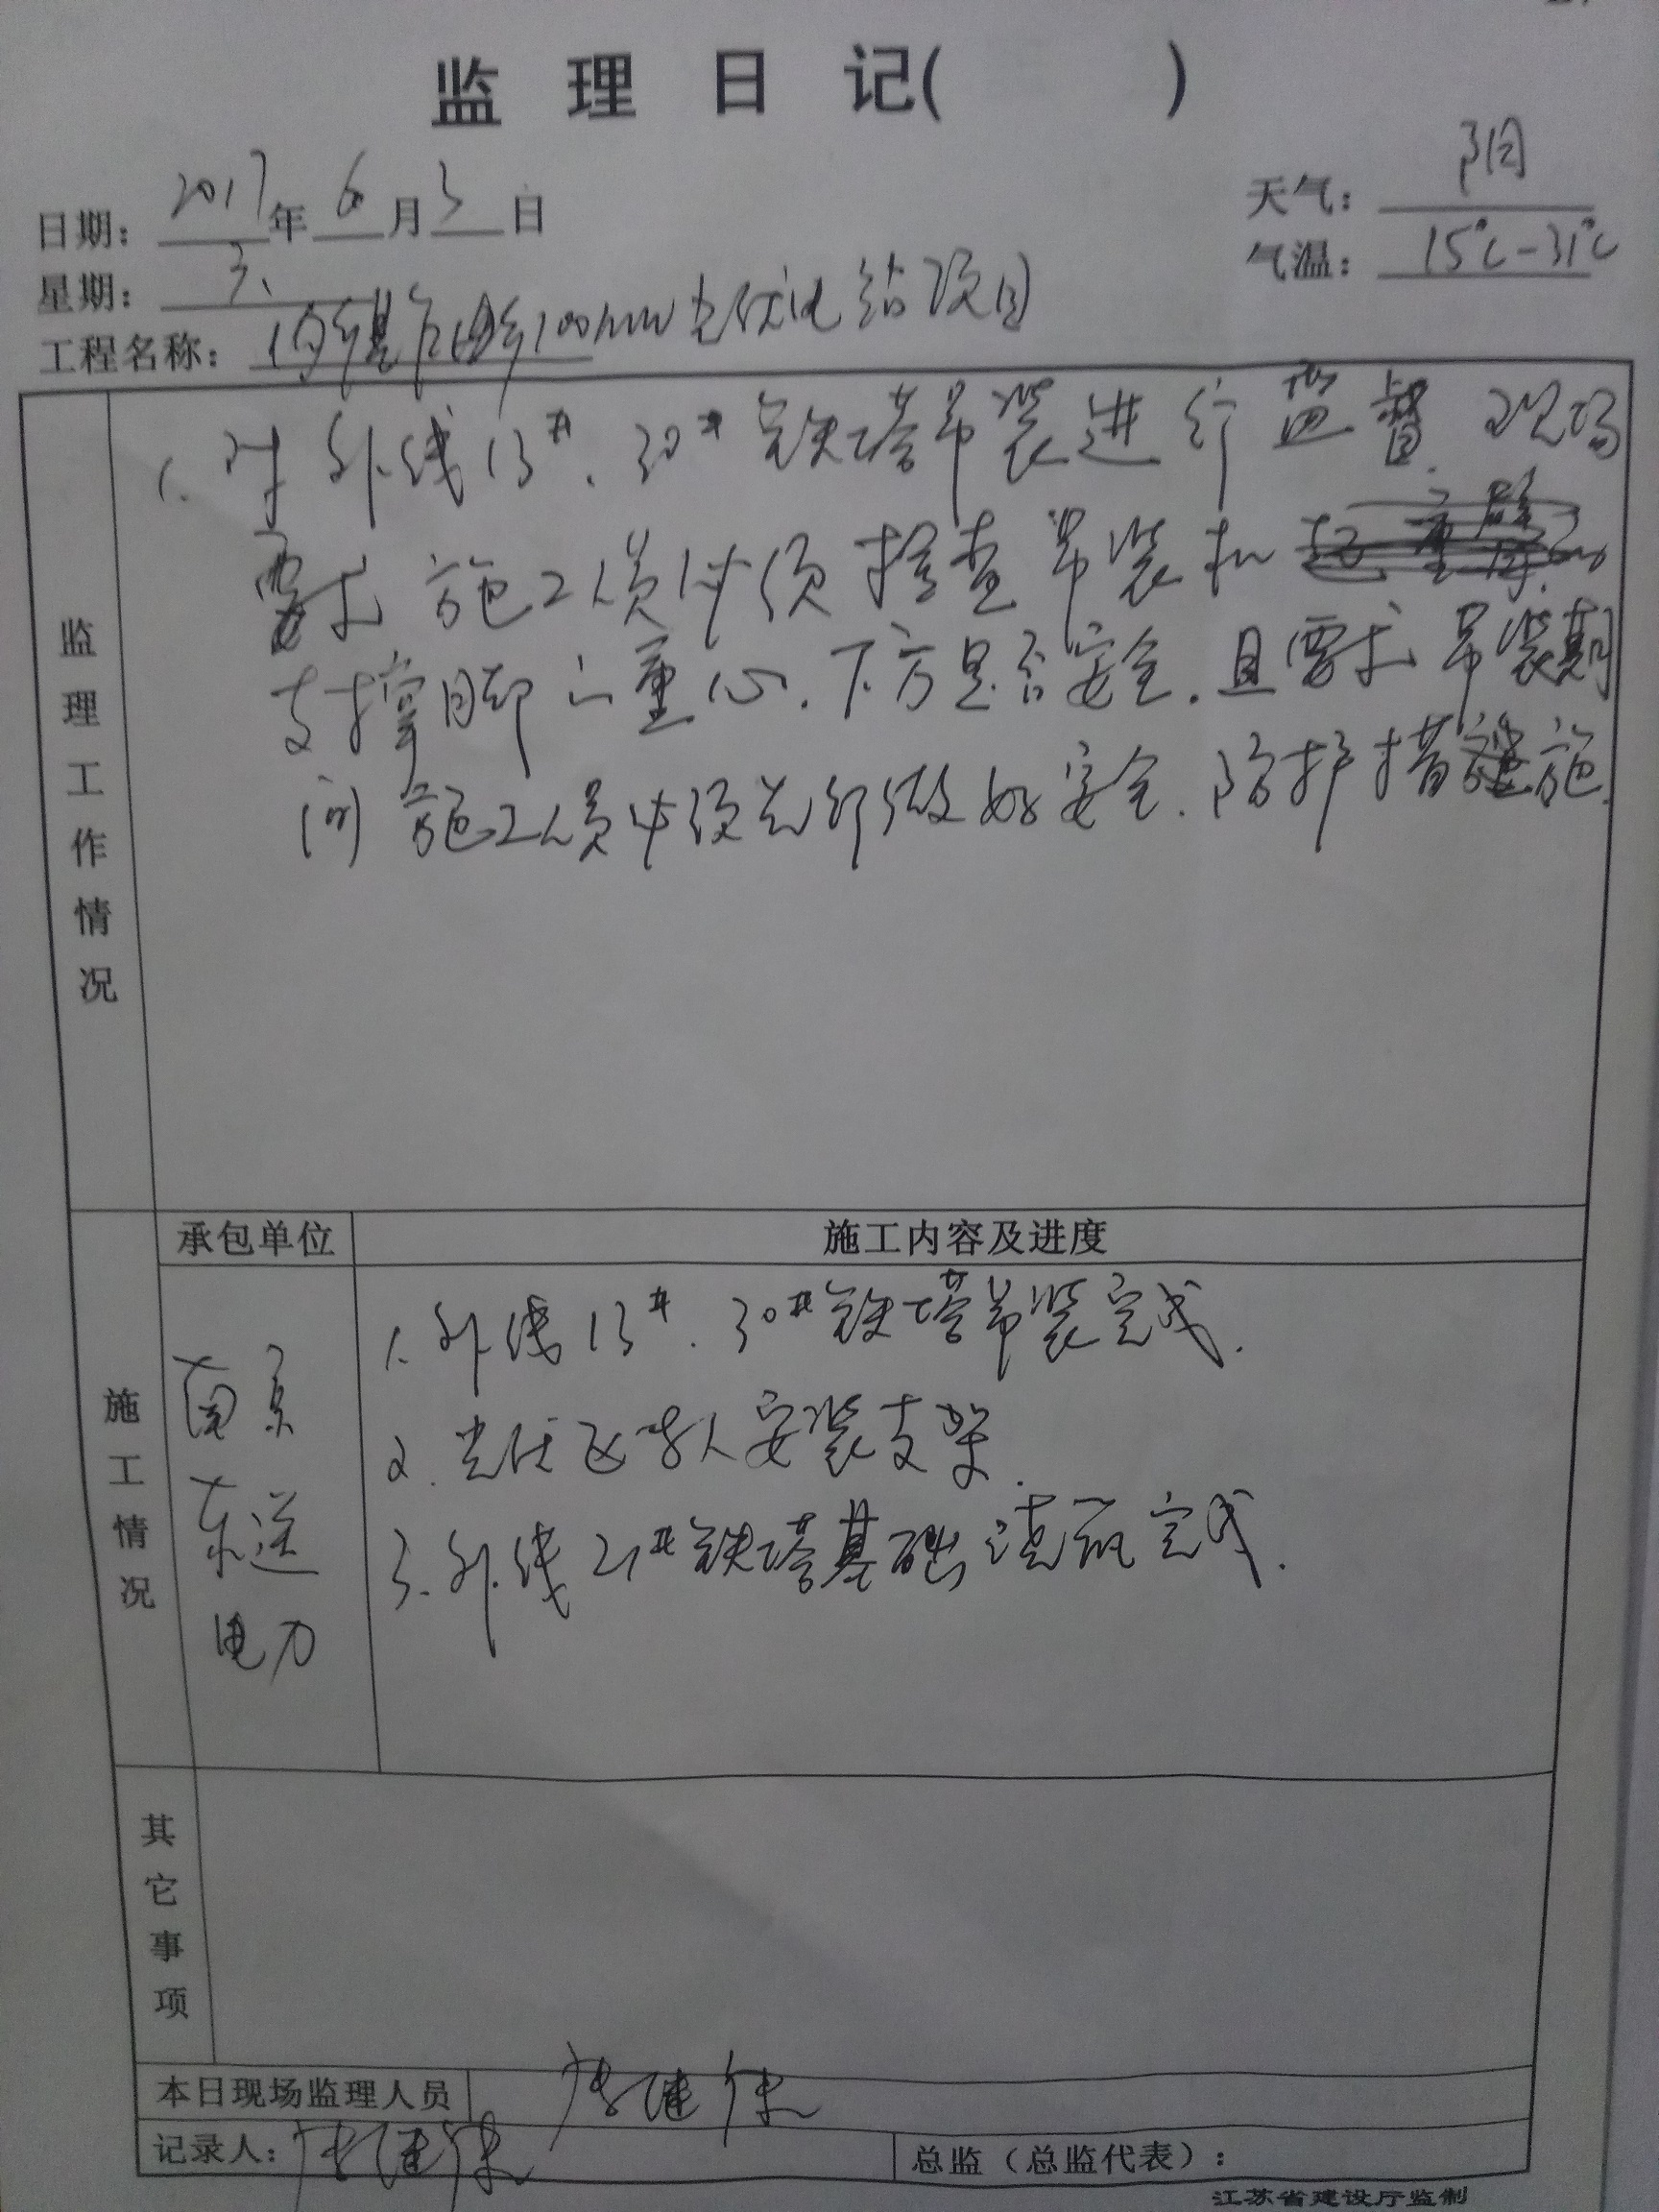 监 理 日 记( )
日期：2017年6月3日
天气：阴
星期：六
气温：15℃-31℃
工程名称：100MW光伏电站项目
监理工作情况
1. 对外线13#、30#铁塔吊装进行监督.现场
要求施工人员必须检查吊装机
支撑脚 重心.下方是否安全.且要求吊装期
间施工人员必须 做好安全.防护措施.
承包单位
施工内容及进度
施工情况
南京
东送
电力
1. 外线13#.30#铁塔吊装完成.
2. 光伏区 人安装支架.
3. 外线21#铁塔基础浇筑完成.
其它事项
本日现场监理人员
记录人：
总监（总监代表）：
江苏省建设厅监制